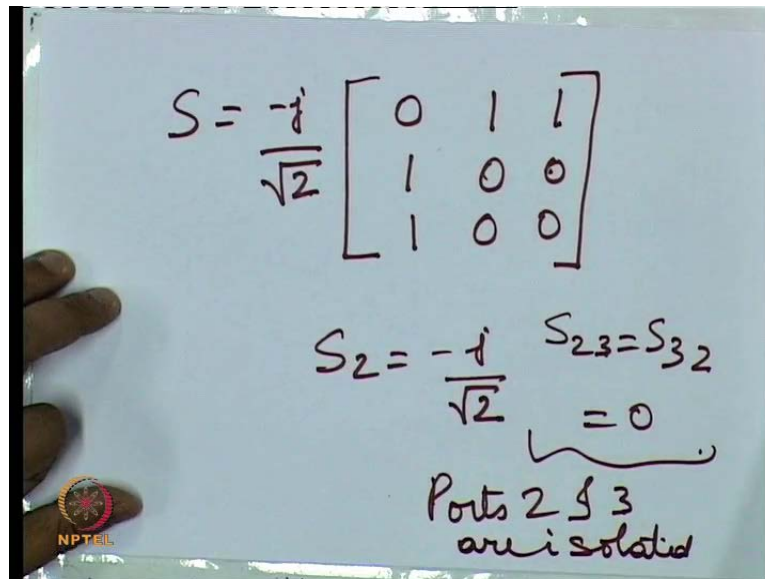 S = -j/√2 [ 0 1 1
1 0 0
1 0 0 ]
S2 = -j/√2 S23 = S32
= 0
Ports 2 & 3
are isolatid
NPTEL